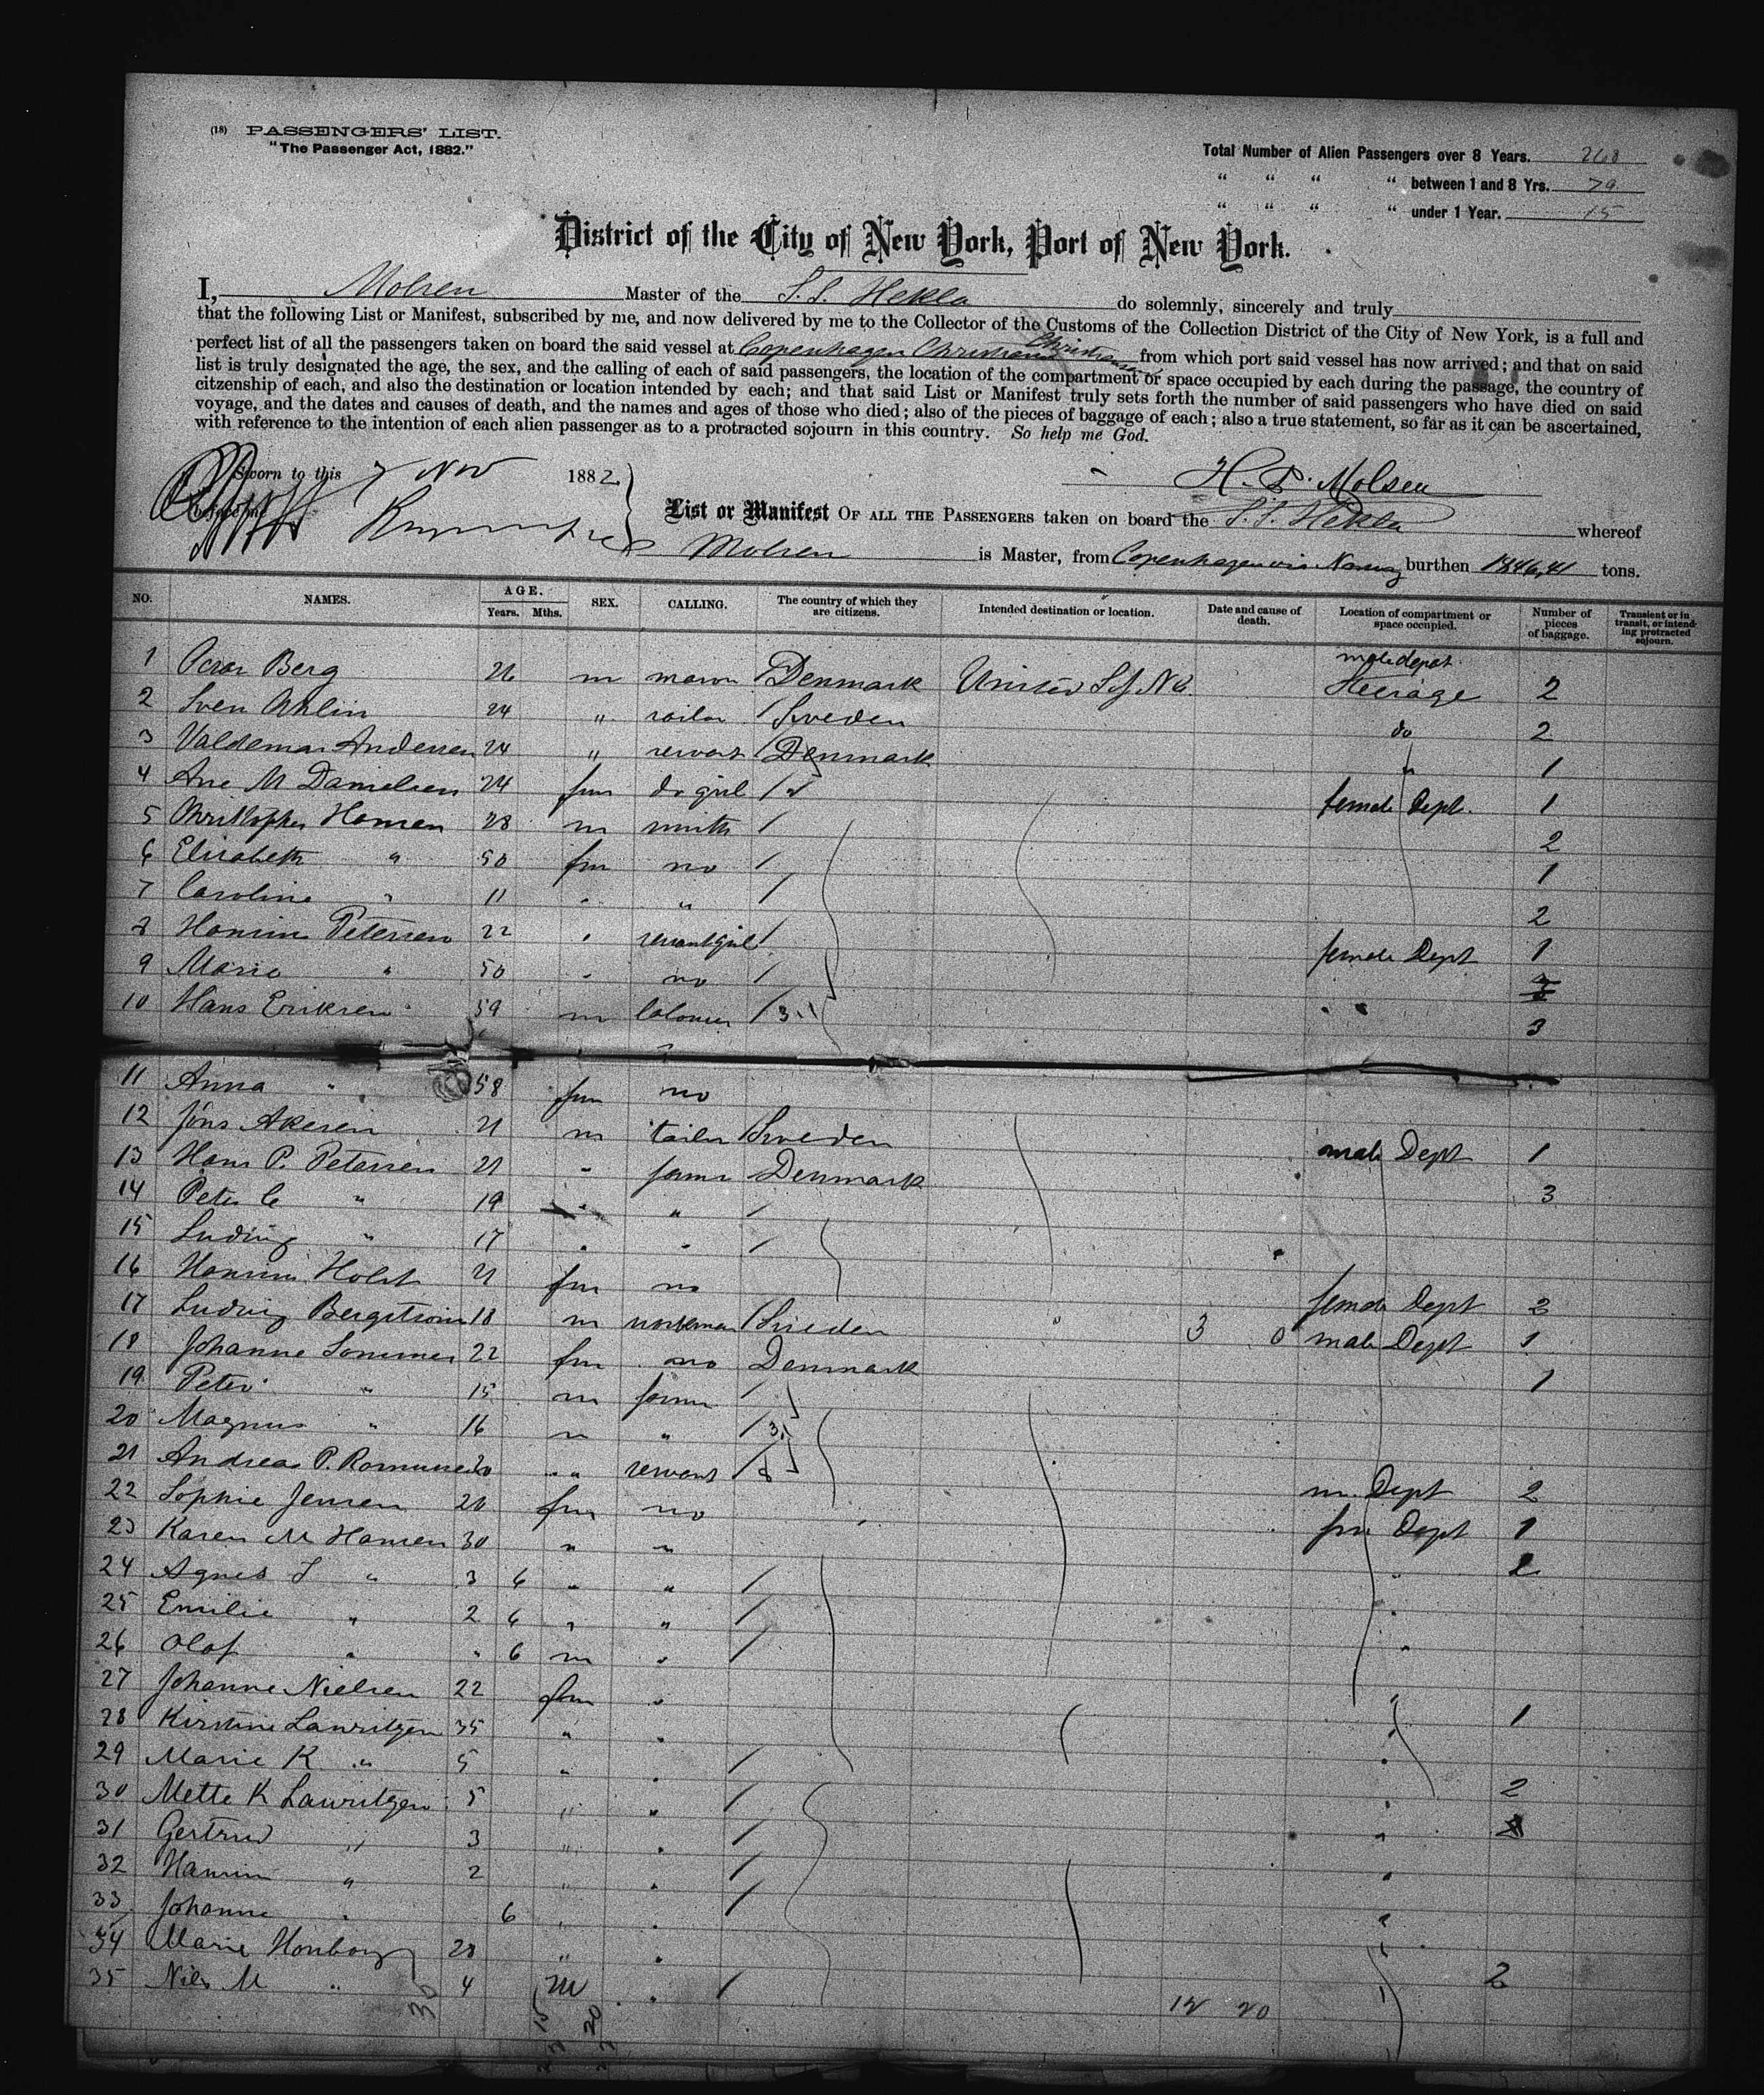 (18) PASSENGERS' LIST.
"The Passenger Act, 1882."
Total Number of Alien Passengers over 8 Years. 268
" " " " between 1 and 8 Yrs. 79
" " " " under 1 Year. 15
District of the City of New York, Port of New York.
I, Molsen Master of the S.S. Hekla do solemnly, sincerely and truly
that the following List or Manifest, subscribed by me, and now delivered by me to the Collector of the Customs of the Collection District of the City of New York, is a full and
perfect list of all the passengers taken on board the said vessel at Copenhagen Christiania from which port said vessel has now arrived; and that on said
list is truly designated the age, the sex, and the calling of each of said passengers, the location of the compartment or space occupied by each during the passage, the country of
citzenship of each, and also the destination or location intended by each; and that said List or Manifest truly sets forth the number of said passengers who have died on said
voyage, and the dates and causes of death, and the names and ages of those who died; also of the pieces of baggage of each; also a true statement, so far as it can be ascertained,
with reference to the intention of each alien passenger as to a protracted sojourn in this country. So help me God.
Sworn to this 7 Nov 1882
H. P. Molsen
List or Manifest OF ALL THE PASSENGERS taken on board the S.S. Hekla whereof
Molsen is Master, from Copenhagen via Norway burthen 1846,41 tons.
NO. NAMES. AGE. Years. Mths. SEX. CALLING. The country of which they are citizens. Intended destination or location. Date and cause of death. Location of compartment or space occupied. Number of pieces of baggage. Transient or in transit, or intending protracted sojourn.
1 Oscar Berg 26 m mason Denmark United S. of NA. male depat. Steerage 2
2 Sven Ahlin 24 " sailor / Sweden do 2
3 Valdemar Andersen 24 " servant / Denmark " 1
4 Ane M Danielsen 24 fm do girl / female Dept. 1
5 Christopher Hansen 28 m smith / 2
6 Elisabeth " 50 fm no / 1
7 Caroline " 11 " " / 2
8 Hansine Petersen 22 " servantgirl / female Dept 1
9 Marie " 50 " no /
10 Hans Eriksen 59 m labourer / 3 " " 3
11 Anna " 58 fm no
12 Jöns Akesen 21 m tailor / Sweden male Dept 1
13 Hans P. Petersen 21 " farmer Denmark 3
14 Peter C " 19 " " /
15 Ludvig " 17 " " /
16 Hansine Holst 21 fm no female Dept 2
17 Ludvig Bergstrom 18 m workman / Sweden 3 0 male Dept 1
18 Johanne Sommer 22 fm no Denmark 1
19 Peter " 15 m farmer /
20 Magnus " 16 m " / 3
21 Andreas P. Romuns 20 " servant / m Dept 2
22 Sophie Jensen 20 fm no fm Dept 1
23 Karen M Hansen 30 " " 2
24 Agnes J " 3 6 " " / "
25 Emilie " 2 6 " " / "
26 Olaf " " 6 m " / "
27 Johanne Nielsen 22 fm " " 1
28 Kirstine Lauritzen 35 " " "
29 Marie K " 5 " " / " 2
30 Mette K Lauritzen 5 " " / "
31 Gertrud " 3 " " / "
32 Hansine " 2 " " / "
33 Johanne " 6 " " / "
34 Marie Honborg 28 " " " 2
35 Niels M " 4 m " /
30
12 20